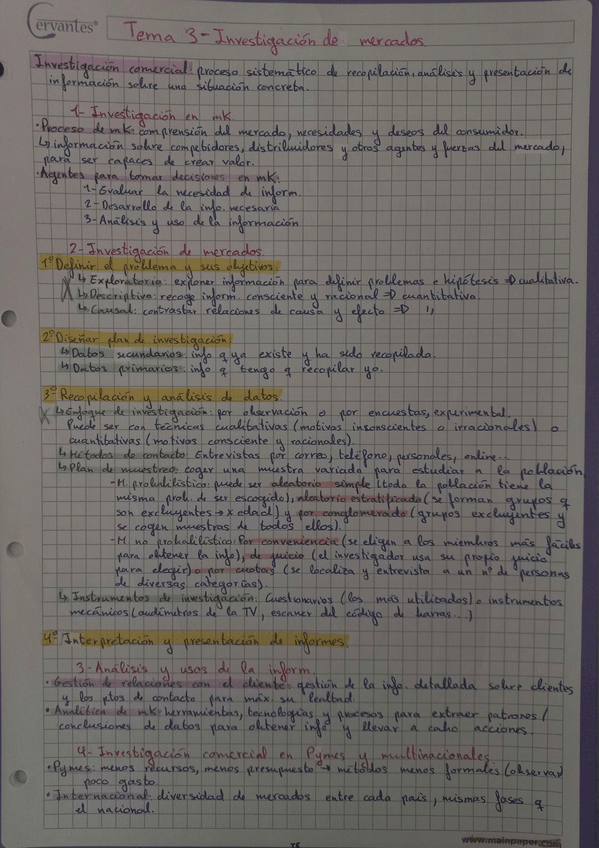 Cervantes®
Tema 3 - Investigación de mercados
Investigación comercial: proceso sistemático de recopilación, análisis y presentación de
información sobre una situación concreta.
1- Investigación en mk.
· Proceso de mk: comprensión del mercado, necesidades y deseos del consumidor.
↳ información sobre competidores, distribuidores y otros agentes y fuerzas del mercado,
para ser capaces de crear valor.
· Agentes para tomar decisiones en mk:
1- Evaluar la necesidad de inform.
2- Desarrollo de la info. necesaria
3- Análisis y uso de la información
2- Investigación de mercados.
1º Definir el problema y sus objetivos:
↳ Exploratoria: exponer información para definir problemas e hipótesis => cualitativa.
↳ Descriptiva: recoge inform. consciente y racional => cuantitativa.
↳ Causal: contrastar relaciones de causa y efecto => ' ' ,
2º Diseñar plan de investigación:
↳ Datos secundarios: info q ya existe y ha sido recopilada.
↳ Datos primarios: info q tengo q recopilar yo.
3º Recopilación y análisis de datos
↳ Enfoque de investigación: por observación o por encuestas, experimental.
Puede ser con técnicas cualitativas (motivos insconscientes o irracionales) o
cuantitativas (motivos consciente y racionales).
↳ Métodos de contacto: Entrevistas por correo, teléfono, personales, online...
↳ Plan de muestreo: coger una muestra variada para estudiar a la población
- M. probabilístico: puede ser aleatorio simple (toda la población tiene la
misma prob. de ser escogido), aleatorio estratificado (se forman grupos q
son excluyentes → x edad) y por conglomerado (grupos excluyentes y
se cogen muestras de todos ellos).
- M no probabilístico: Por conveniencia (se eligen a los miembros más fáciles
para obtener la info), de juicio (el investigador usa su propio juicio
para elegir) o por cuotas (se localiza y entrevista a un nº de personas
de diversas categorías).
↳ Instrumentos de investigación: Cuestionarios (los más utilizados) o instrumentos
mecánicos (audímetros de la TV, escaner del código de barras...)
4º Interpretación y presentación de informes.
3- Análisis y usos de la inform.
· Gestión de relaciones con el cliente: gestión de la info. detallada sobre clientes
y los ptos de contacto para máx. su lealtad.
· Analítica de mk: herramientas, tecnologías y procesos para extraer patrones /
conclusiones de datos para obtener info y llevar a cabo acciones.
4- Investigación comercial en Pymes y multinacionales
· Pymes: menos recursos, menos presupuesto → métodos menos formales (observar)
poco gasto.
· Internacional: diversidad de mercados entre cada país, mismas fases q
el nacional.
www.mainpaper.com